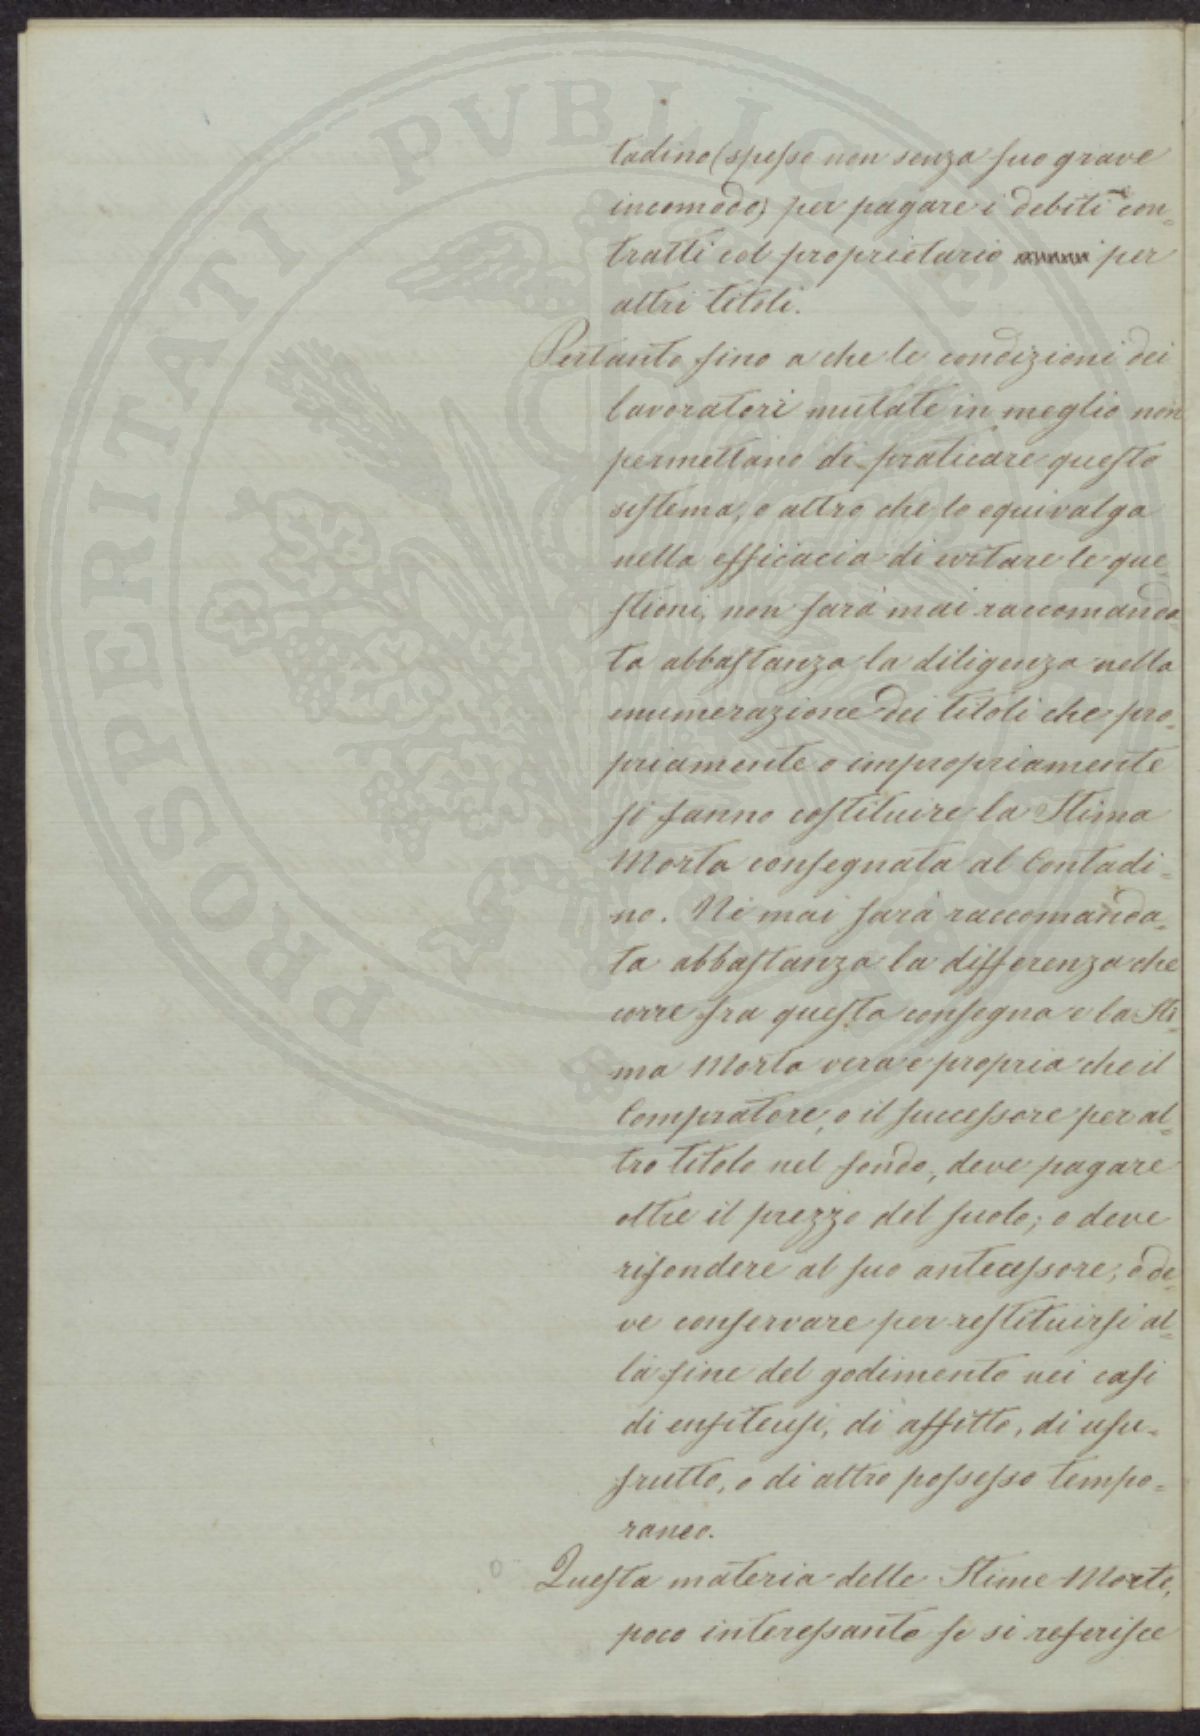 PROSPERITATI PVBLICAE AVGENDAE
tadino (spesso non senza suo grave
incomodo) per pagare i debiti con=
tratti col proprietario per
altri titoli.
Pertanto fino a che le condizioni dei
lavoratori mutate in meglio non
permettano di praticare questo
sistema, o altro che lo equivalga
nella efficacia di evitare le que
stioni, non sarà mai raccomanda
ta abbastanza la diligenza nella
enumerazione dei titoli che pro=
priamente o impropriamente
si fanno costituire la Stima
Morta consegnata al Contadi=
no. Nè mai sarà raccomanda=
ta abbastanza la differenza che
corre fra questa consegna e la Sti=
ma Morta vera e propria che il
Compratore, o il successore per al=
tro titolo nel fondo, deve pagare
oltre il prezzo del suolo; o deve
rifondere al suo antecessore; o de=
ve conservare per restituirsi al=
la fine del godimento nei casi
di enfiteusi, di affitto, di usu=
frutto, o di altro possesso tempo=
raneo.
Questa materia delle Stime Morte,
poco interessante se si referisce